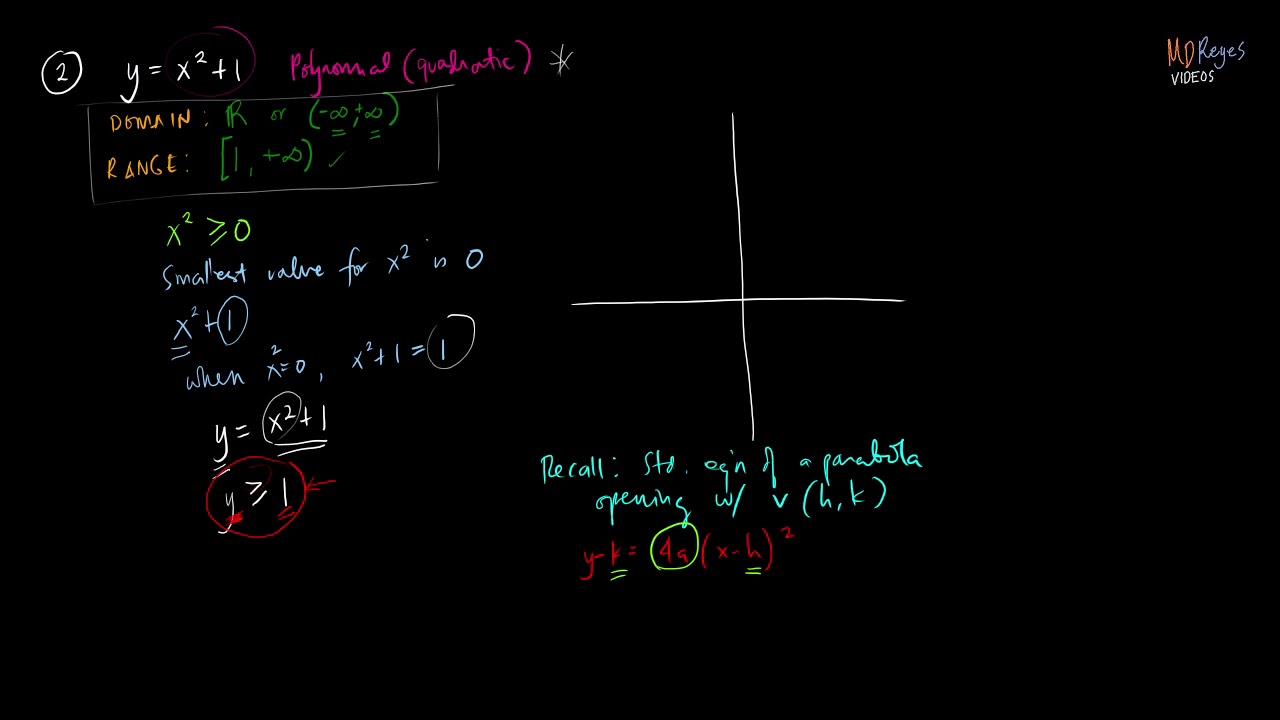 ② y = x² + 1 Polynomial (quadratic) *
DOMAIN: ℝ or (-∞, +∞)
RANGE: [1, +∞) ✓
x² ≥ 0
Smallest value for x² is 0
x² + 1
when x² = 0, x² + 1 = 1
y = x² + 1
y ≥ 1
Recall: Std. eq'n of a parabola
opening w/ V (h, k)
y - k = 4a (x - h)²
MDReyes
VIDEOS